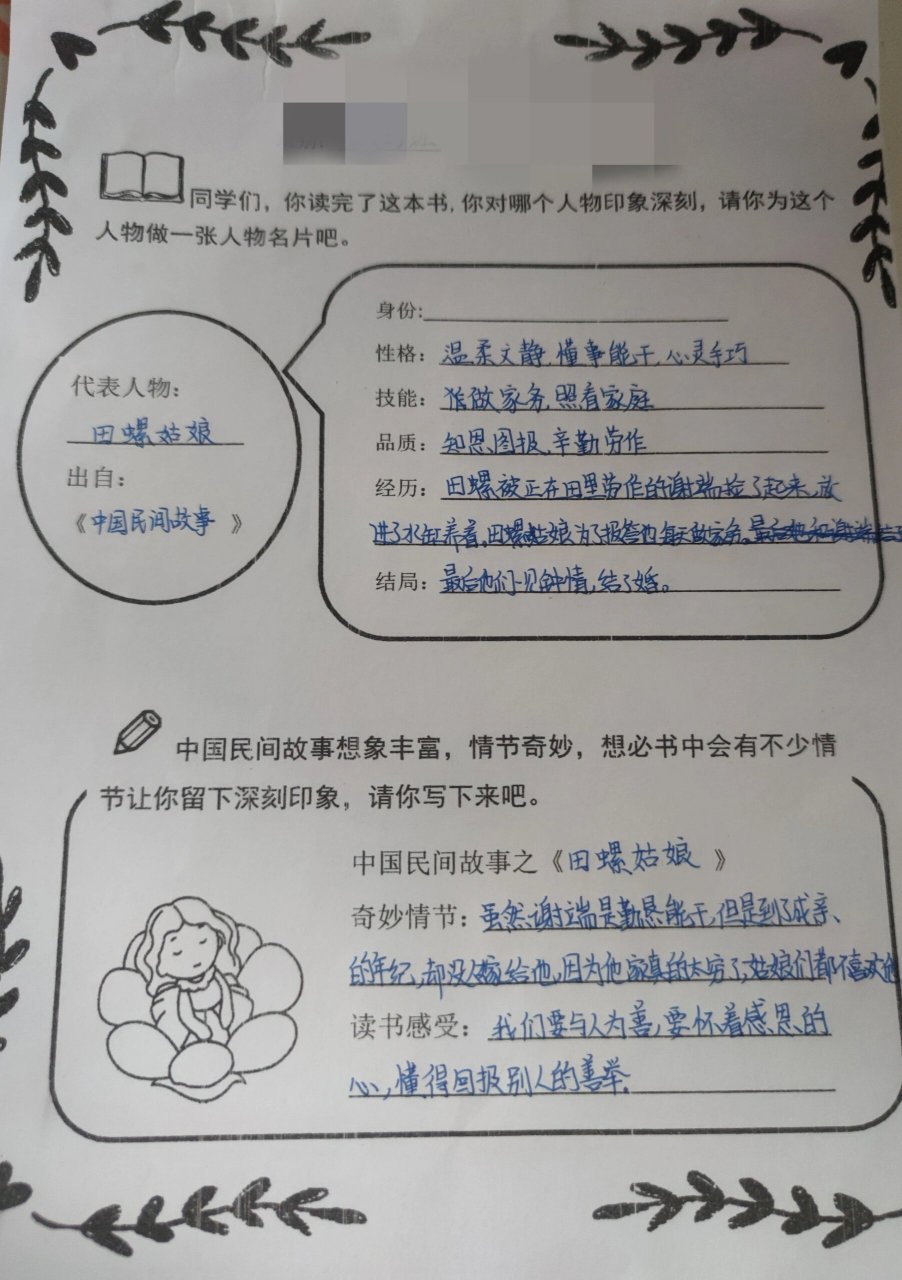 同学们，你读完了这本书，你对哪个人物印象深刻，请你为这个
人物做一张人物名片吧。
代表人物：
田螺姑娘
出自：
《中国民间故事》
身份：
性格：温柔文静，懂事能干，心灵手巧
技能：做家务，照看家庭
品质：知恩图报，辛勤劳作
经历：田螺被正在田里劳作的谢端捡了起来，放
进了水缸养着，田螺姑娘为了报答他每天做家务。
结局：最后他们一见钟情，结了婚。
中国民间故事想象丰富，情节奇妙，想必书中会有不少情
节让你留下深刻印象，请你写下来吧。
中国民间故事之《田螺姑娘》
奇妙情节：虽然谢端是勤恳能干，但是到了成亲
的年纪，却没人嫁给他，因为他家真的太穷了，姑娘们都不喜欢他
读书感受：我们要与人为善，要怀着感恩的
心，懂得回报别人的善举。